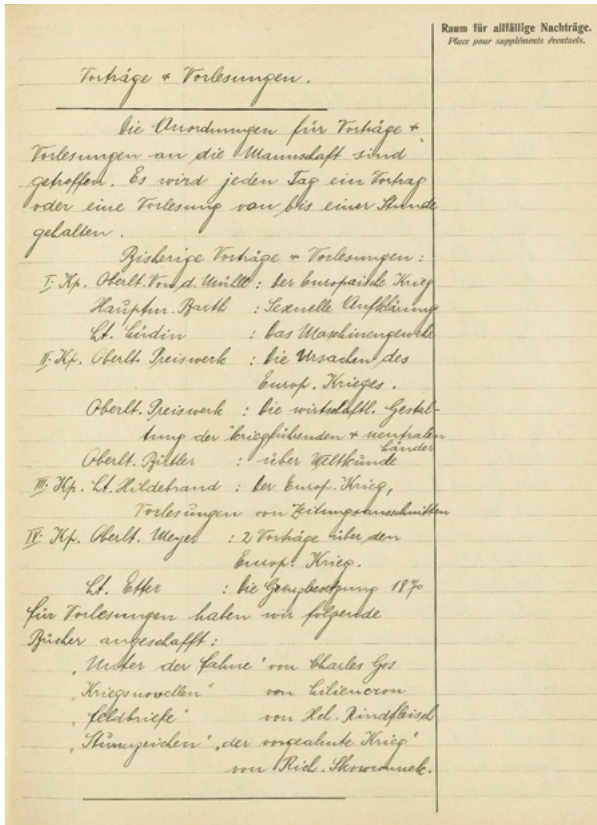 Raum für allfällige Nachträge.
Place pour suppléments éventuels.
Vorträge & Vorlesungen.
Die Anordnungen für Vorträge &
Vorlesungen an die Mannschaft sind
getroffen. Es wird jeden Tag ein Vortrag
oder eine Vorlesung von bis einer Stunde
gehalten.
Bisherige Vorträge & Vorlesungen:
I. Kp. Oberlt. Von d. Mühll: Der Europäische Krieg
Hauptm. Barth : Sexuelle Aufklärung
Lt. Lüdin : Das Maschinengewehr
II. Kp. Oberlt. Preiswerk : Die Ursachen des
Europ. Krieges.
Oberlt. Preiswerk : Die wirtschaftl. Gestal-
tung der kriegführenden & neutralen
Länder
Oberlt. Bütler : über Weltkunde
III. Kp. Lt. Hildebrand : Der Europ. Krieg,
Vorlesungen von Zeitungsausschnitten
IV. Kp. Oberlt. Meyer : 2 Vorträge über den
Europ. Krieg.
Lt. Etter : Die Grenzbesetzung 1870
Für Vorlesungen haben wir folgende
Bücher angeschafft:
„Unter der Fahne" von Charles Gos
„Kriegsnovellen" von Liliencron
„Feldbriefe" von Hch. Rindfleisch
„Sturmzeichen" „der vorgeahnte Krieg"
von Rich. Skowronnek.